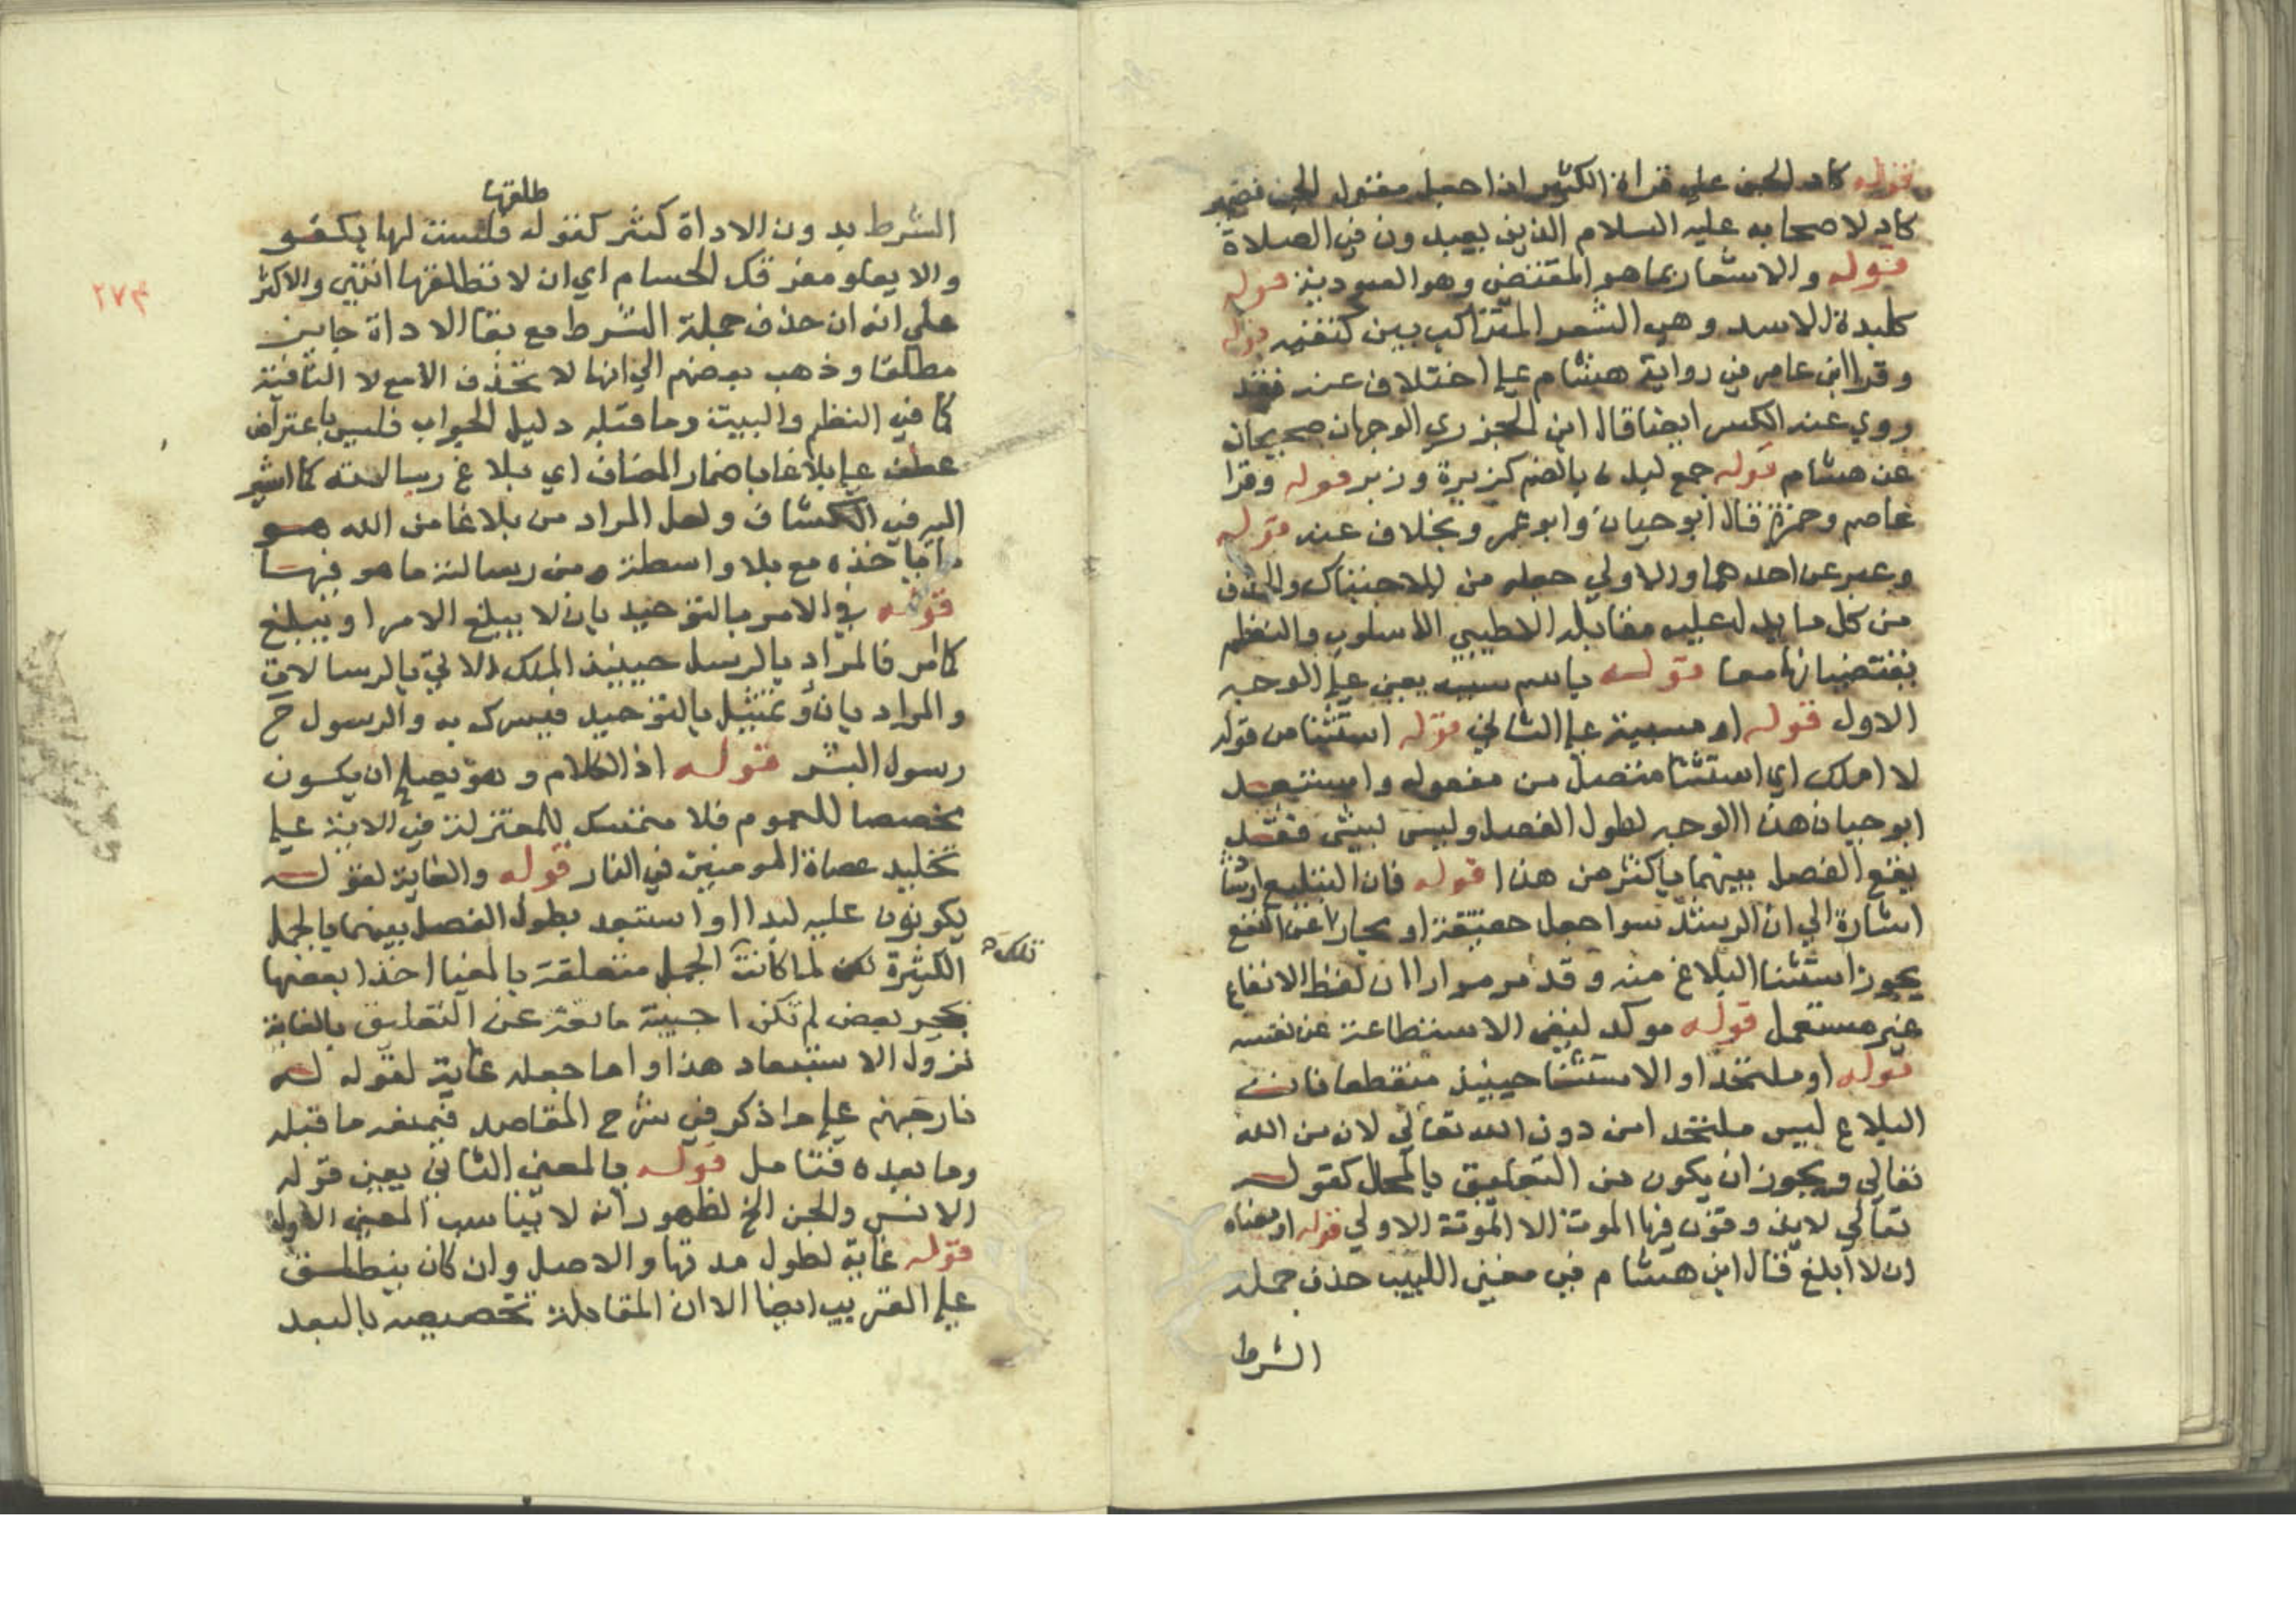 قوله كاد الجن علي قراة الكسر اذا جعل مقول الجن فضمير
كادوا لاصحابه عليه السلام الذين يعبدون في الصلاة
قوله والاشعار بما هو المقتضي وهو العبودية قوله
كلبدة الاسد وهي الشعر المتراكب بين كتفيه قوله
وقرا ابن عامر في رواية هشام علي اختلاف عنه فقد
روي عنه الكسر ايضا قال ابن الجزري الوجهان صحيحان
عن هشام قوله جمع لبدة بالضم كزبرة وزبر قوله وقرا
عاصم وحمزة قال ابو حيان وابو عمرو بخلاف عنه قوله
وعبر عن احدهما والاولي جعله من الاحتباك والحذف
من كل ما يدل عليه مقابله الا طيبي الاسلوب والنظم
يقتضيانها معا قوله باسم سببه يعني علي الوجه
الاول قوله او مسببه علي الثاني قوله استثنا من قوله
لا املك اي استثنا متصل من مفعوله واستبعد
ابو حيان هذا الوجه لطول الفصل وليس بشي فقد
يقع الفصل بينهما باكثر من هذا قوله فان التبليغ ارشاد
اشارة الي ان الرشد سوا جعل حقيقة او مجازا عن النفع
يجوز استثنا البلاغ منه وقد مر مرارا ان لفظ الانفاع
غير مستعمل قوله موكد لنفي الاستطاعة عن نفسه
قوله او ملتحدا والاستثنا حينيذ منقطعا فان
البلاغ ليس ملتحدا من دون الله تعالي لان من الله
تعالي ويجوز ان يكون من التعليق بالمحال كقوله
تعالي لا يذوقون فيها الموت الا الموتة الاولي قوله او معناه
ان لا ابلغ قال ابن هشام في مغني اللبيب حذف جملة
الشرط
طلقها
الشرط بدون الاداة كثير كقوله فلست لها بكفو
والا يعلو مفرقك الحسام اي ان لا تطلقها انتهي والاكثر
٢٧٣
علي انه ان حذف جملة الشرط مع بقا الاداة جايز
مطلقا وذهب بعضهم الي انها لا تحذف الا مع لا النافية
كما في النظم والبيت وما قبله دليل الجواب فليس باعتراض
عطف علي بلاغا باضمار المضاف اي بلاغ رسالاته كما اشير
اليه في الكشاف ولعل المراد من بلاغا من الله هو
ما ياخذه مع بلا واسطة ومن رسالته ما هو فيها
قوله في الامر بالتوحيد بان لا يبلغ الامر او يبلغ
كما مر فالمراد بالرسل حينيذ الملك الاتي بالرسالات
والمراد بان يمتثل بالتوحيد فيشرك به والرسول ح
رسول البشر قوله اذ الكلام وهو يصلح ان يكون
مخصصا للعموم فلا متمسك للمعتزلة في الاية علي
تخليد عصاة المومنين في النار قوله والغاية لقوله
يكونون عليه لبدا او استبعد بطول الفصل بينهما بالجمل
الكثيرة لكن لما كانت تلك الجمل متعلقة بالمغيا اخذا بعضها
بحجر بعض لم تكن اجنبية مانعة عن التعليق بالغاية
نزول الاستبعاد هذا واما جعله غاية لقوله له
نار جهنم علي ما ذكر في شرح المقاصد فيمنعه ما قبله
وما بعده فتامل قوله بالمعني الثاني يعني قوله
الانس والجن الخ لظهور انه لا يناسب المعني الاول
قوله غاية لطول مدتها والاصل وان كان ينطلق
علي القريب ايضا الا ان المقابلة تخصيصه بالبعد